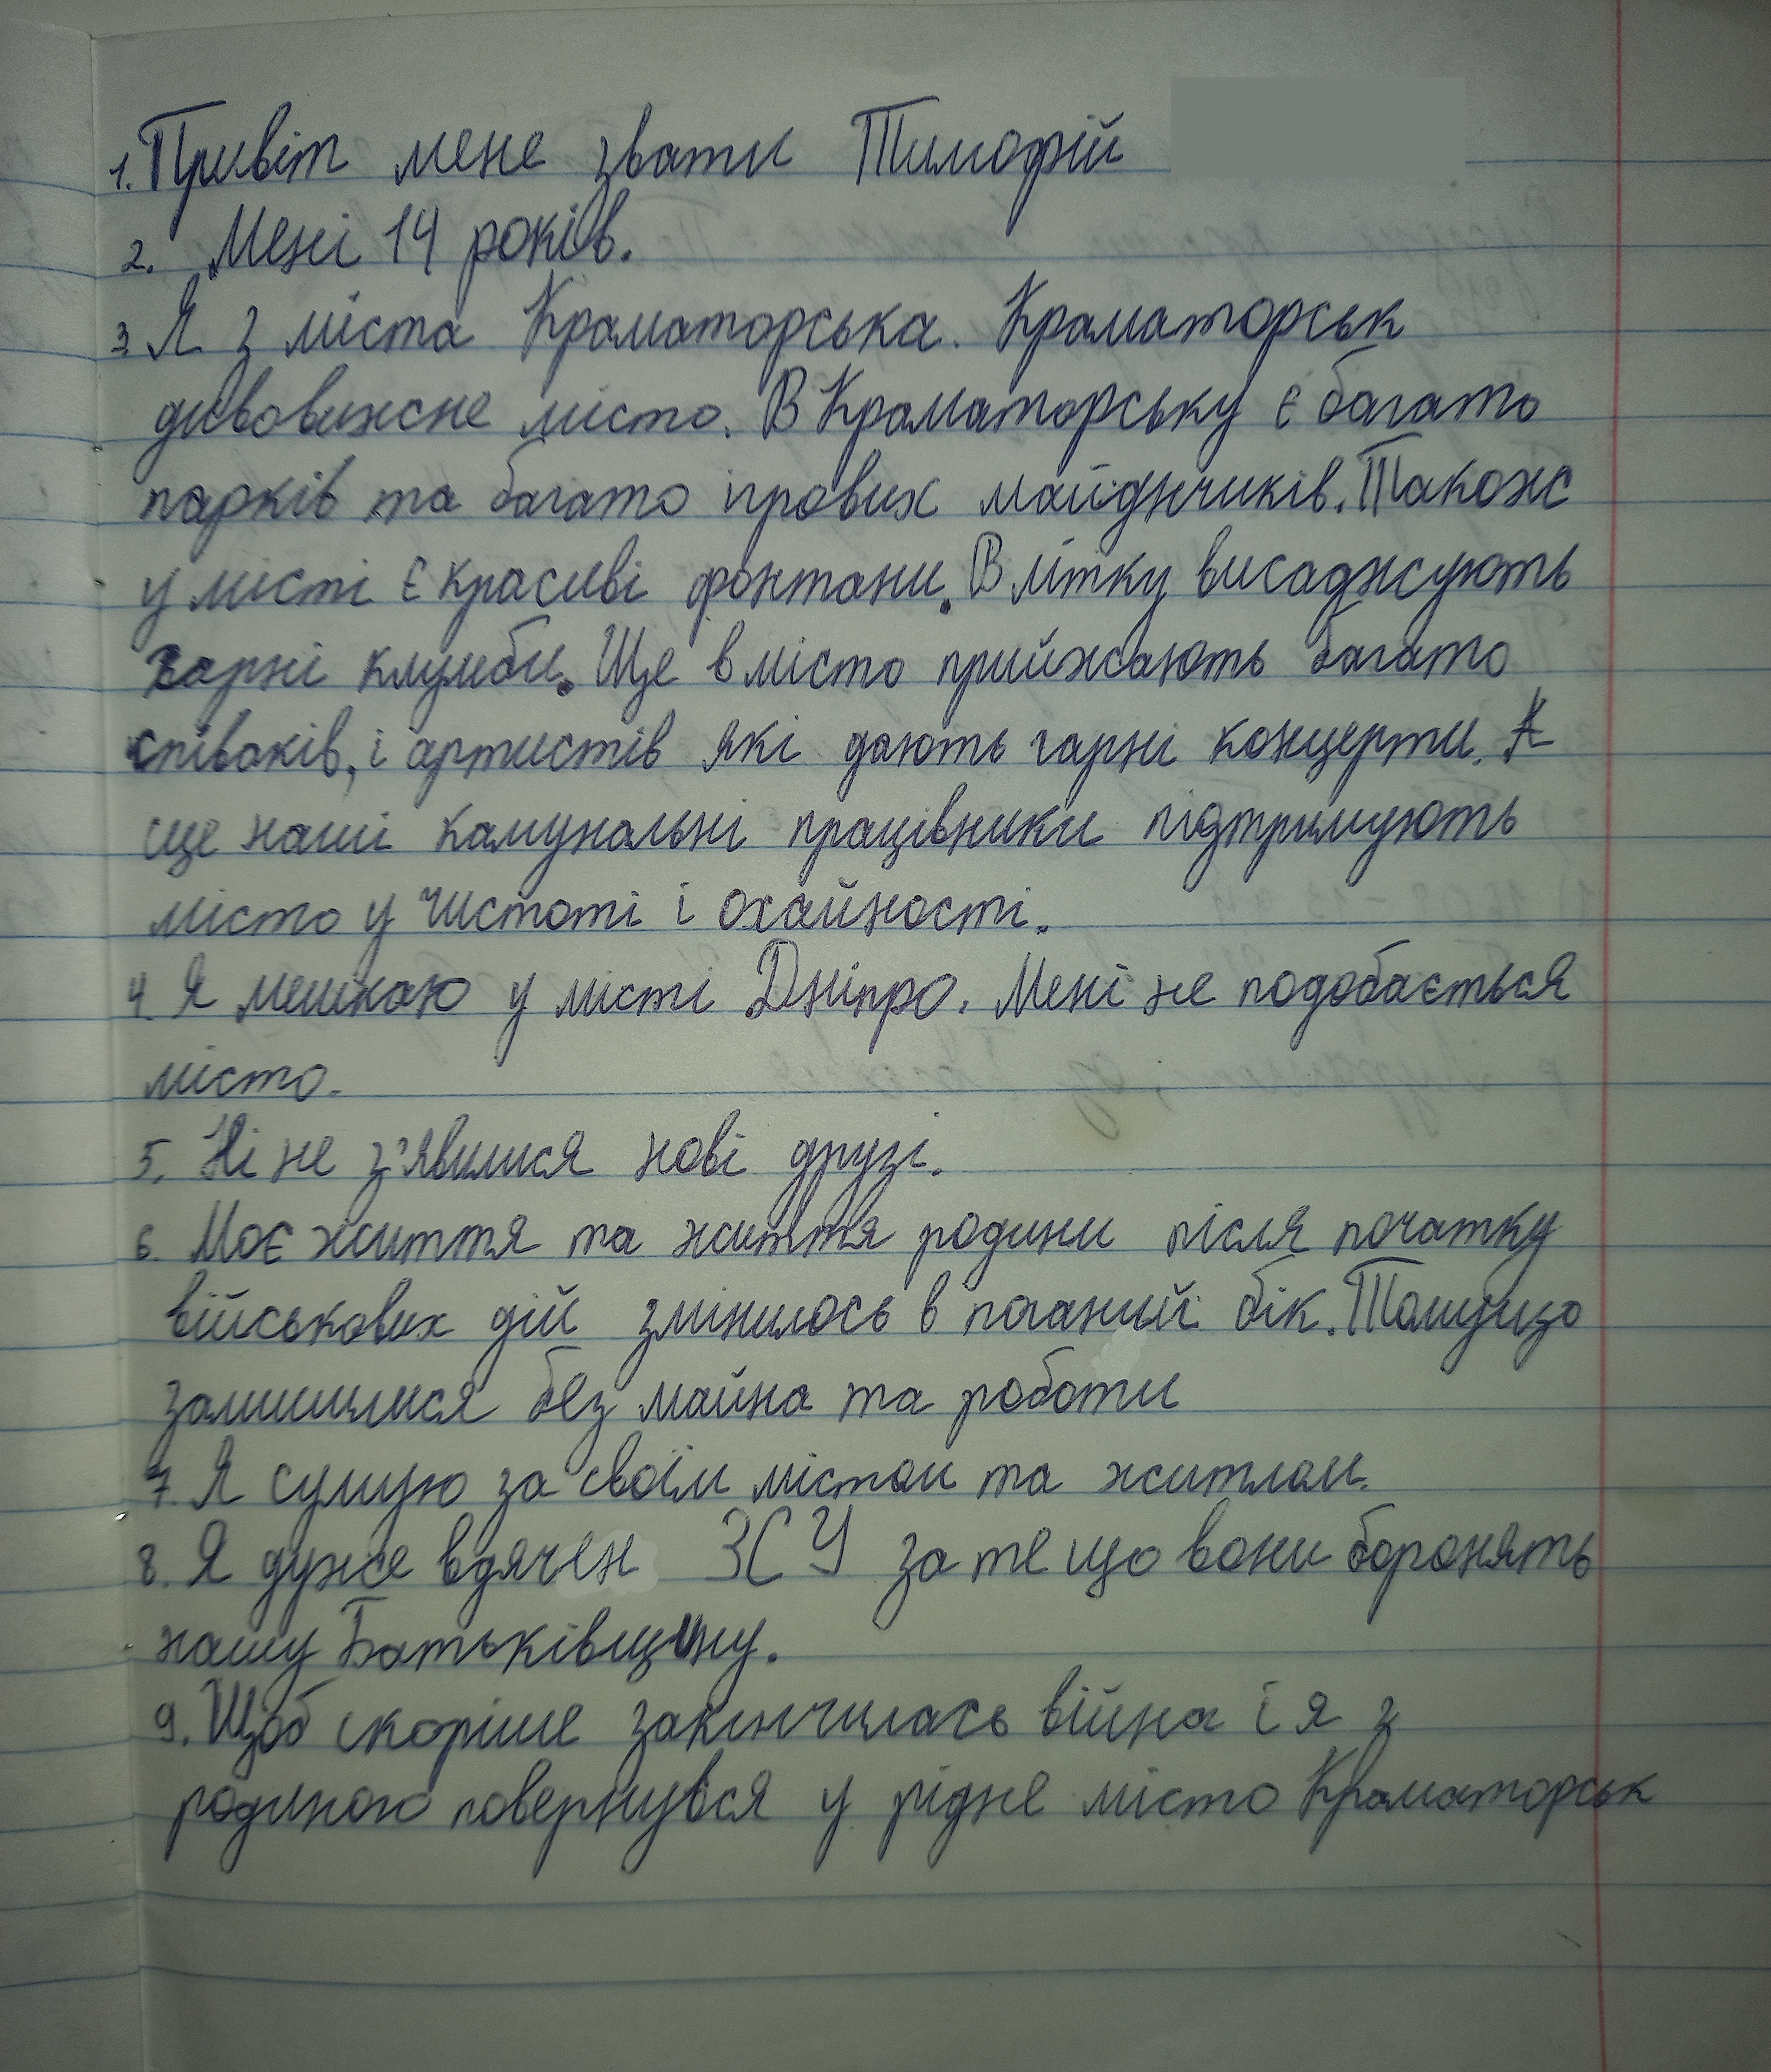 1. Привіт мене звати Тимофій
2. Мені 14 років.
3 Я з міста Краматорська. Краматорськ
дивовижне місто. В Краматорську є багато
парків та багато ігрових майднчиків. Також
у місті є красиві фонтани. В літку висаджують
гарні клумби. Ще в місто прийжають багато
співаків, і артистів які дають гарні концерти. А
ще наші камунальні працівники підтримують
місто у чистоті і охайності.
4. Я мешкаю у місті Дніпро. Мені не подобається
місто.
5. Ні не з'явилися нові друзі.
6. Моє життя та життя родини після початку
військових дій змінилось в поганий бік. Тому що
залишилися без майна та роботи
7. Я сумую за своїм містом та житлом.
8. Я дуже вдячен ЗСУ за те що вони боронять
нашу Батьківщину.
9. Щоб скоріше закінчилась війна і я з
родиною повернувся у рідне місто Краматорськ